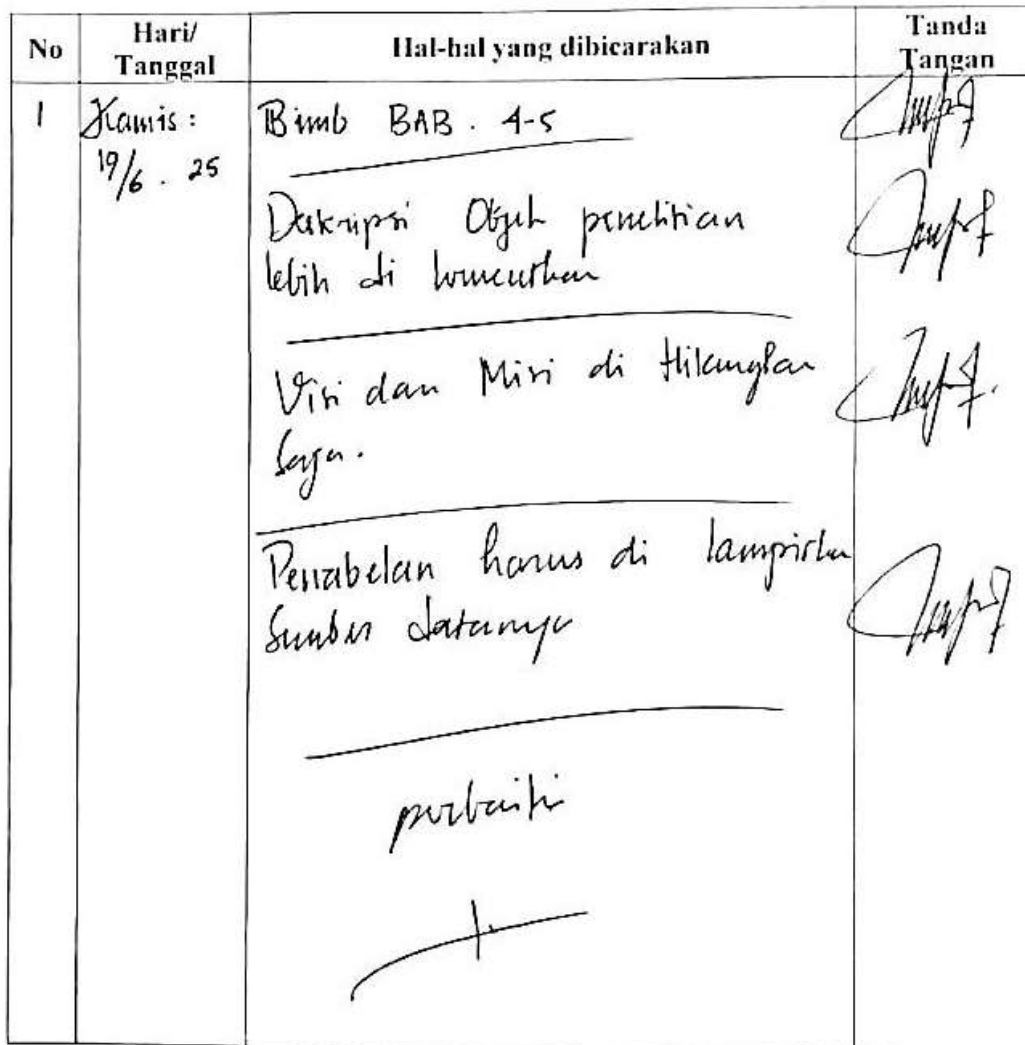 No
Hari/
Tanggal
Hal-hal yang dibicarakan
Tanda
Tangan
1
Kamis :
19/6 . 25
Bimb BAB . 4-5
Deskripsi Objek penelitian
lebih di
Visi dan Misi di Hilangkan
saja.
Pentabelan harus di lampirkan
Sumber datanya
perbaiki